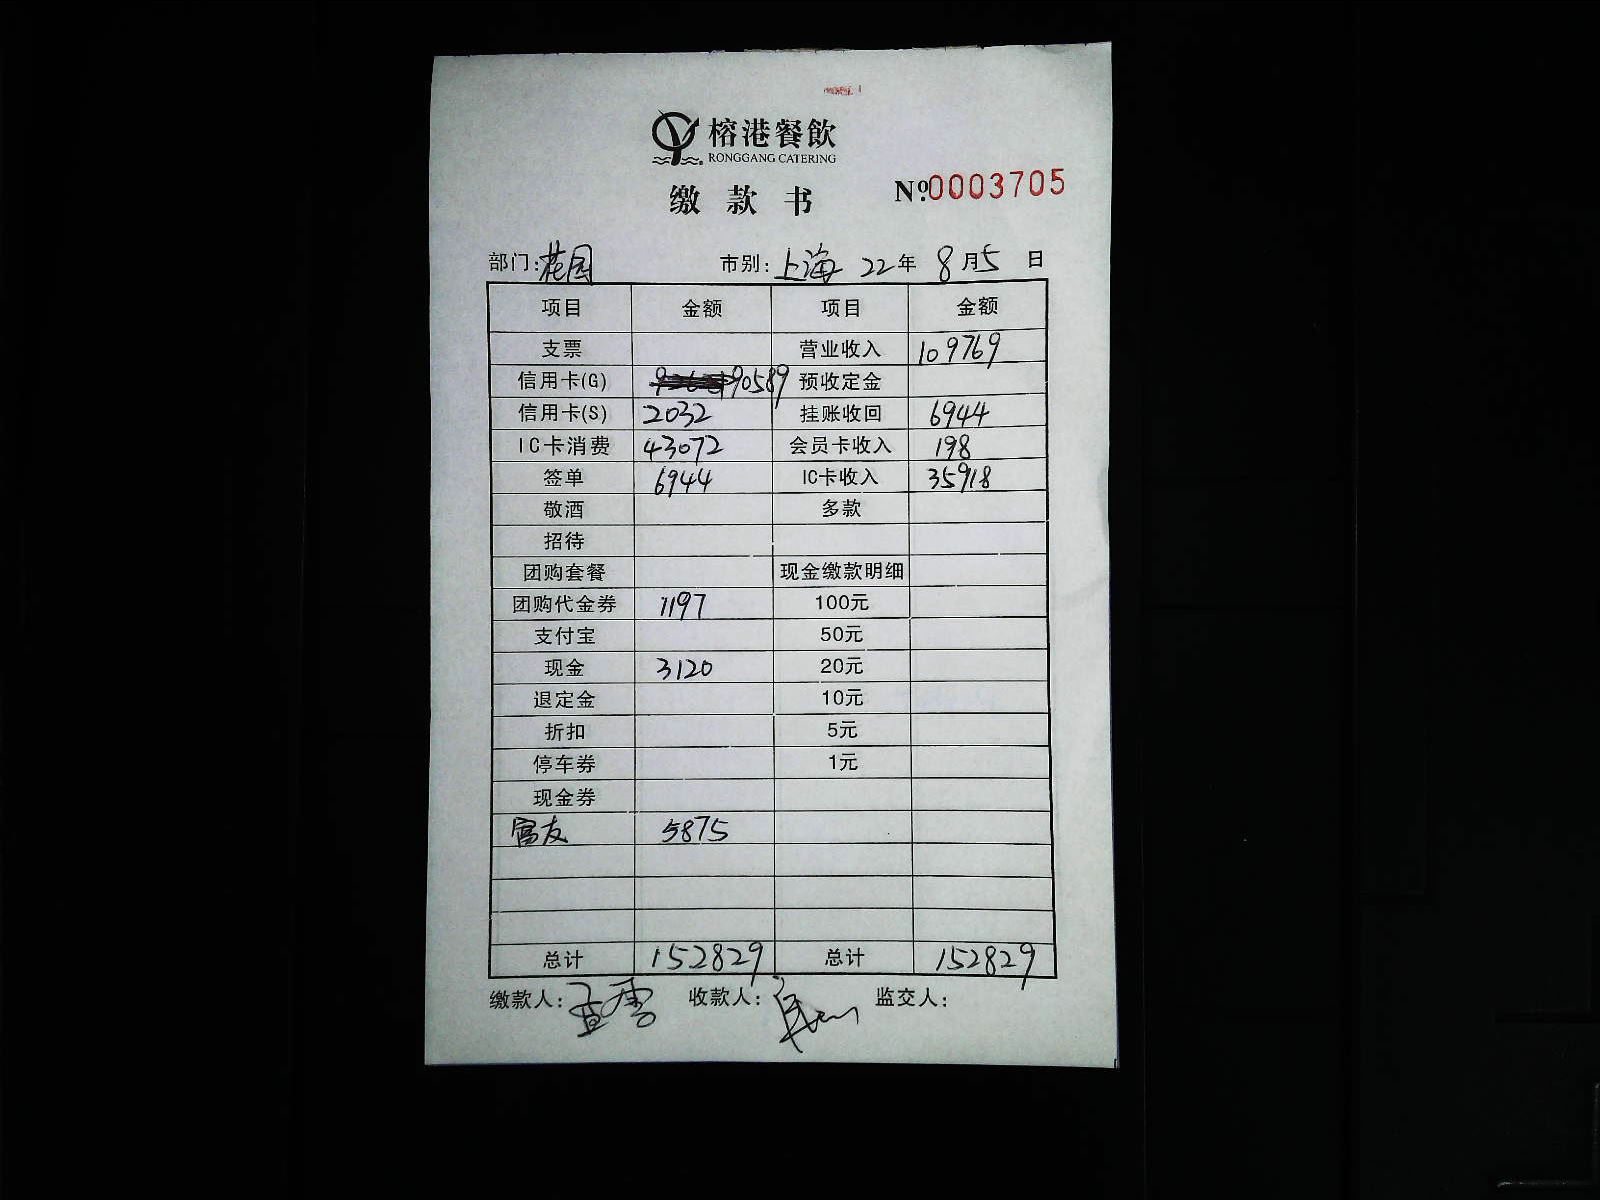 榕港餐飲
RONGGANG CATERING
缴款书 №0003705
部门:花园 市别:上海 22年 8月5日
项目 金额 项目 金额
支票 营业收入 109769
信用卡(G) 90589 预收定金
信用卡(S) 2032 挂账收回 6944
IC卡消费 43072 会员卡收入 198
签单 6944 IC卡收入 35918
敬酒 多款
招待
团购套餐 现金缴款明细
团购代金券 1197 100元
支付宝 50元
现金 3120 20元
退定金 10元
折扣 5元
停车券 1元
现金券
富友 5875
总计 152829 总计 152829
缴款人: 收款人: 监交人: